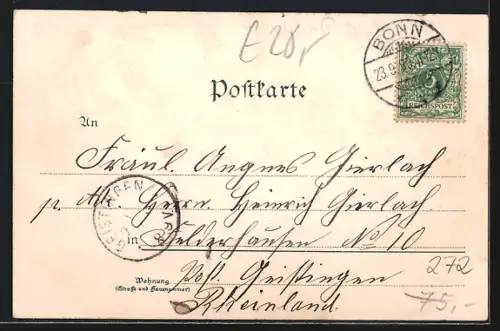 E 20,-
BONN
23.9.
5
REICHSPOST
Postkarte
An
Fräul. Angnes Gierlach
p. Adr. Herrn Heinrich Gierlach
in Gelderhausen No 10
Post Geistingen
272
Wohnung
(Straße und Hausnummer)
Rheinland.
75,-